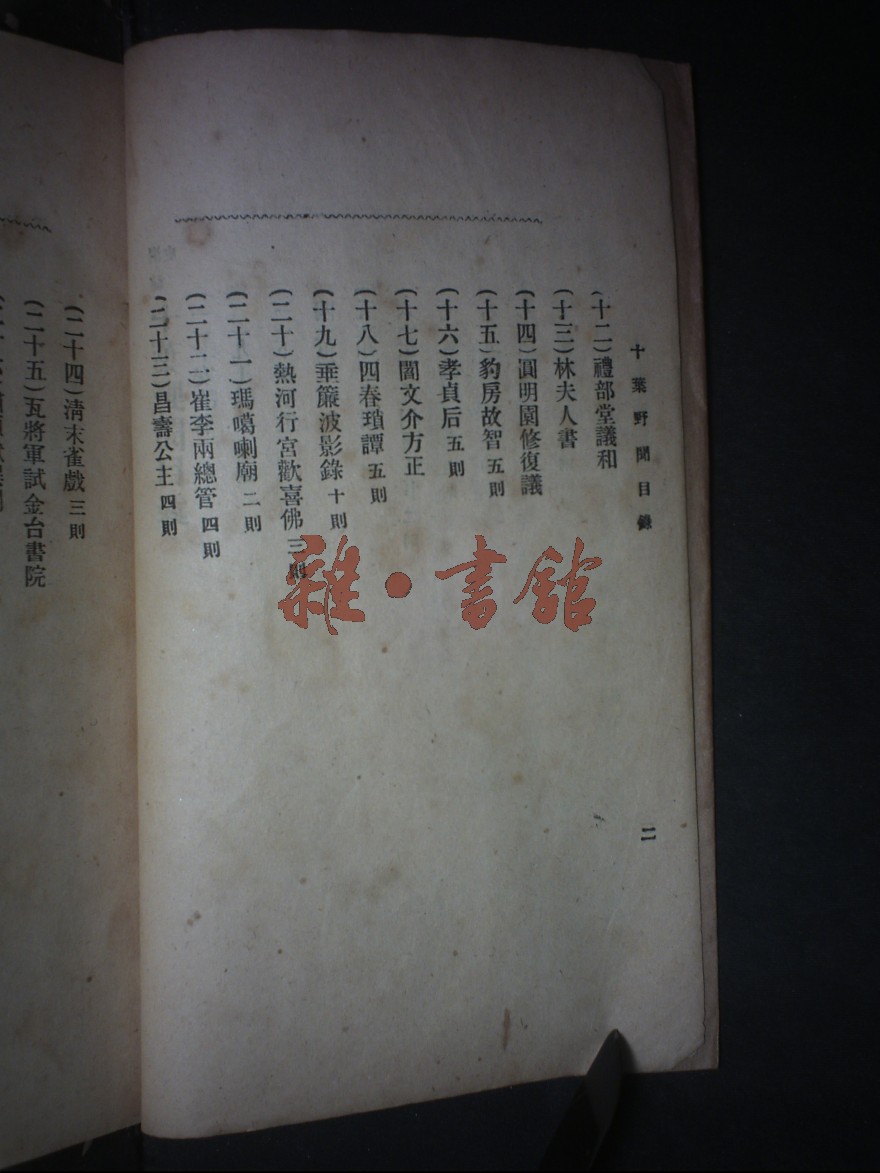 十葉野聞目錄
二
(十二)禮部堂議和
(十三)林夫人書
(十四)圓明園修復議
(十五)豹房故智 五則
(十六)孝貞后 五則
(十七)閻文介方正
(十八)四春瑣譚 五則
(十九)垂簾波影錄 十則
(二十)熱河行宮歡喜佛 三則
(二十一)瑪噶喇廟 二則
(二十二)崔李兩總管 四則
(二十三)昌壽公主 四則
(二十四)清末雀戲 三則
(二十五)瓦將軍試金台書院
雜·書館